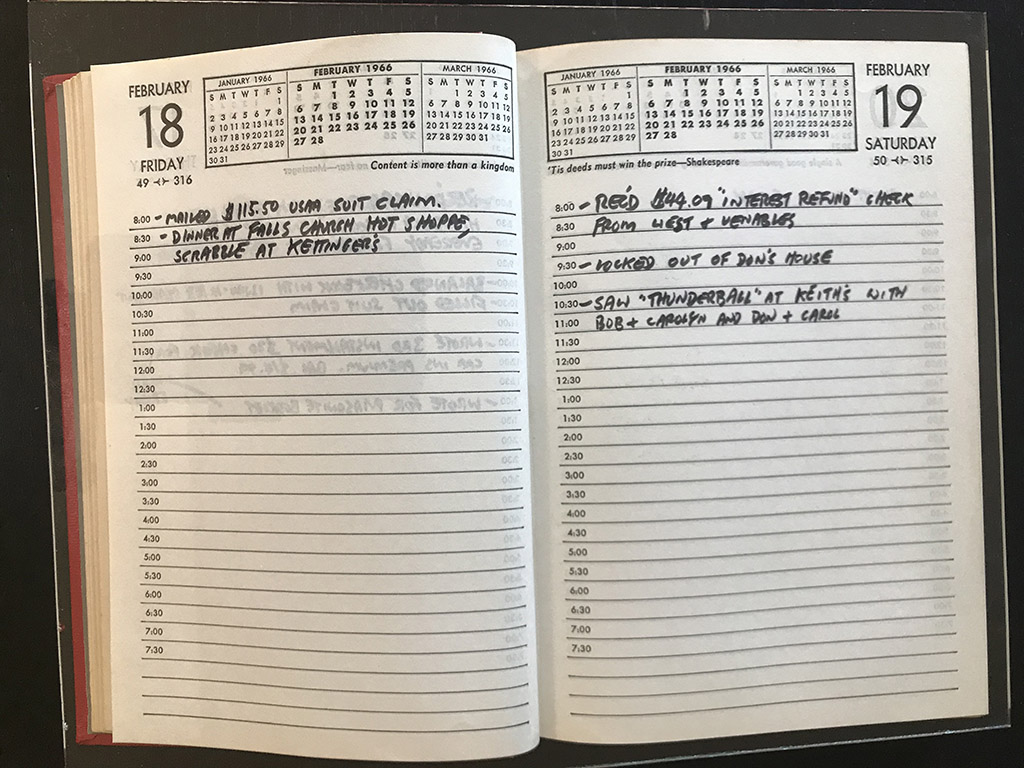 FEBRUARY
18
FRIDAY
49 316
JANUARY 1966
S M T W T F S
1
2 3 4 5 6 7 8
9 10 11 12 13 14 15
16 17 18 19 20 21 22
23 24 25 26 27 28 29
30 31
FEBRUARY 1966
S M T W T F S
1 2 3 4 5
6 7 8 9 10 11 12
13 14 15 16 17 18 19
20 21 22 23 24 25 26
27 28
MARCH 1966
S M T W T F S
1 2 3 4 5
6 7 8 9 10 11 12
13 14 15 16 17 18 19
20 21 22 23 24 25 26
27 28 29 30 31
Content is more than a kingdom
8:00 - MAILED $115.50 USAA SUIT CLAIM.
8:30 - DINNER AT FALLS CHURCH HOT SHOPPE,
9:00 SCRABBLE AT KETTINGER'S
9:30
10:00
10:30
11:00
11:30
12:00
12:30
1:00
1:30
2:00
2:30
3:00
3:30
4:00
4:30
5:00
5:30
6:00
6:30
7:00
7:30
JANUARY 1966
S M T W T F S
1
2 3 4 5 6 7 8
9 10 11 12 13 14 15
16 17 18 19 20 21 22
23 24 25 26 27 28 29
30 31
FEBRUARY 1966
S M T W T F S
1 2 3 4 5
6 7 8 9 10 11 12
13 14 15 16 17 18 19
20 21 22 23 24 25 26
27 28
MARCH 1966
S M T W T F S
1 2 3 4 5
6 7 8 9 10 11 12
13 14 15 16 17 18 19
20 21 22 23 24 25 26
27 28 29 30 31
FEBRUARY
19
SATURDAY
50 315
'Tis deeds must win the prize—Shakespeare
8:00 - REC'D $44.09 "INTEREST REFUND" CHECK
8:30 FROM WEST + VENABLES
9:00
9:30 - LOCKED OUT OF DON'S HOUSE
10:00
10:30 - SAW "THUNDERBALL" AT KEITH'S WITH
11:00 BOB + CAROLYN AND DON + CAROL
11:30
12:00
12:30
1:00
1:30
2:00
2:30
3:00
3:30
4:00
4:30
5:00
5:30
6:00
6:30
7:00
7:30